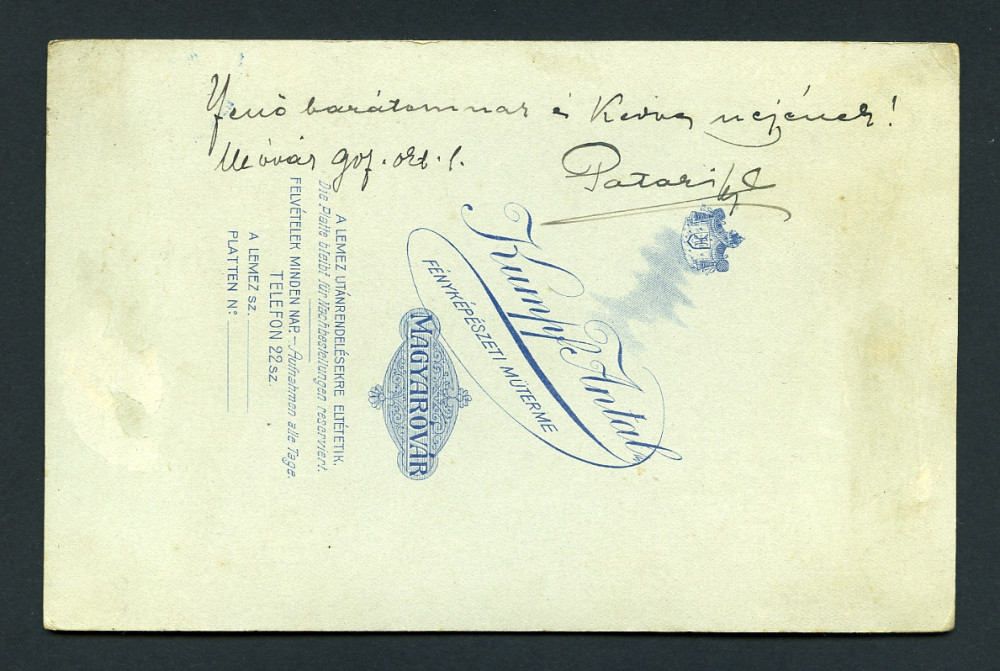 Jenő barátomnak és Kedves nejének!
Móvár 907. okt. 1.
Patari
Kumpf Antal
FÉNYKÉPÉSZETI MŰTERME
MAGYARÓVÁR
A LEMEZ UTÁNRENDELÉSEKRE ELTÉTETIK.
Die Platte bleibt für Nachbestellungen reserviert.
FELVÉTELEK MINDEN NAP. – Aufnahmen alle Tage.
TELEFON 22 SZ.
A LEMEZ SZ.
PLATTEN Nº